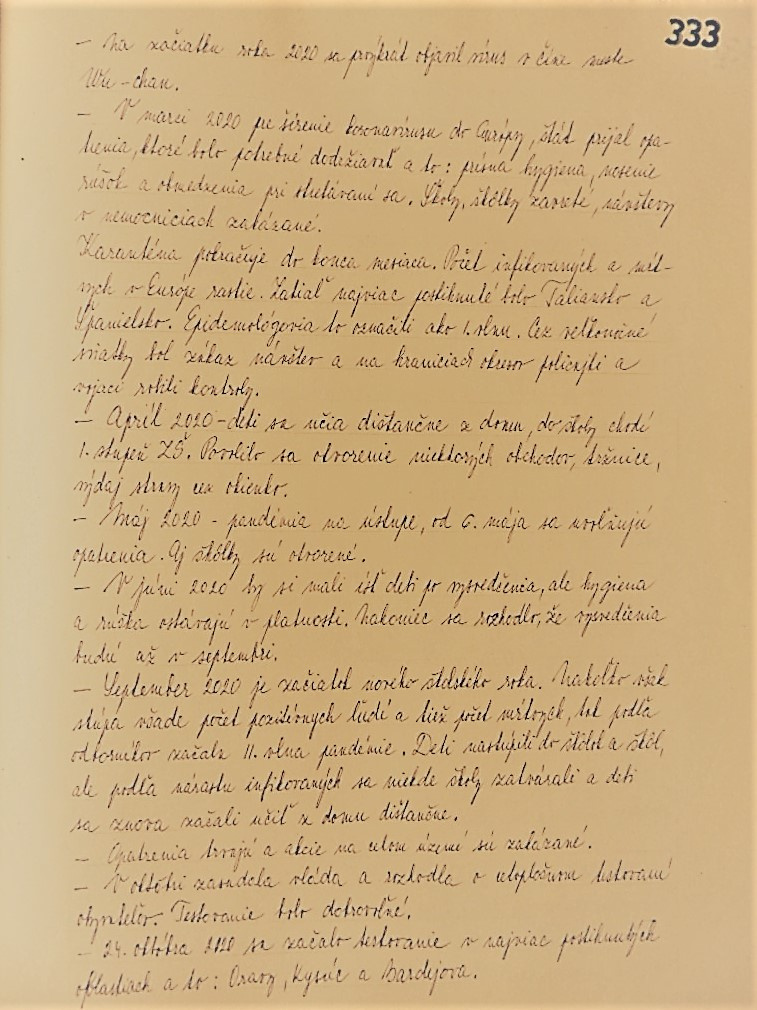 333
- Na začiatku roka 2020 sa prvýkrát objavil vírus v Číne meste
Wu-chan.
- V marci 2020 pre šírenie koronavírusu do Európy, štát prijal opa-
trenia, ktoré bolo potrebné dodržiavať a to: prísna hygiena, nosenie
rúšok a obmedzenia pri stretávaní sa. Školy, škôlky zavreté, návštevy
v nemocniciach zakázané.
Karanténa pokračuje do konca mesiaca. Počet infikovaných a mŕt-
vych v Európe rastie. Zatiaľ najviac postihnuté bolo Taliansko a
Španielsko. Epidemológovia to označili ako 1. vlnu. Cez veľkonočné
sviatky bol zákaz návštev a na hraniciach okresov policajti a
vojaci robili kontroly.
- Apríl 2020 - deti sa učia dištančne z domu, do školy chodí
1. stupeň ZŠ. Povolilo sa otvorenie niektorých obchodov, tržnice,
výdaj stravy cez okienko.
- Máj 2020 - pandémia na ústupe, od 6. mája sa uvoľňujú
opatrenia. Aj škôlky sú otvorené.
- V júni 2020 by si mali ísť deti po vysvedčenia, ale hygiena
a rúška ostávajú v platnosti. Nakoniec sa rozhodlo, že vysvedčenia
budú až v septembri.
- September 2020 je začiatok nového školského roka. Nakoľko však
stúpa všade počet pozitívnych ľudí a tiež počet mŕtvych, tak podľa
odborníkov začala II. vlna pandémie. Deti nastúpili do škôlok a škôl,
ale podľa nárastu infikovaných sa niekde školy zatvárali a deti
sa znova začali učiť z domu dištančne.
- Opatrenia trvajú a akcie na celom území sú zakázané.
- V októbri zasadala vláda a rozhodla o celoplošnom testovaní
obyvateľov. Testovanie bolo dobrovoľné.
- 24. októbra 2020 sa začalo testovanie v najviac postihnutých
oblastiach a to: Oravy, Kysúc a Bardejova.